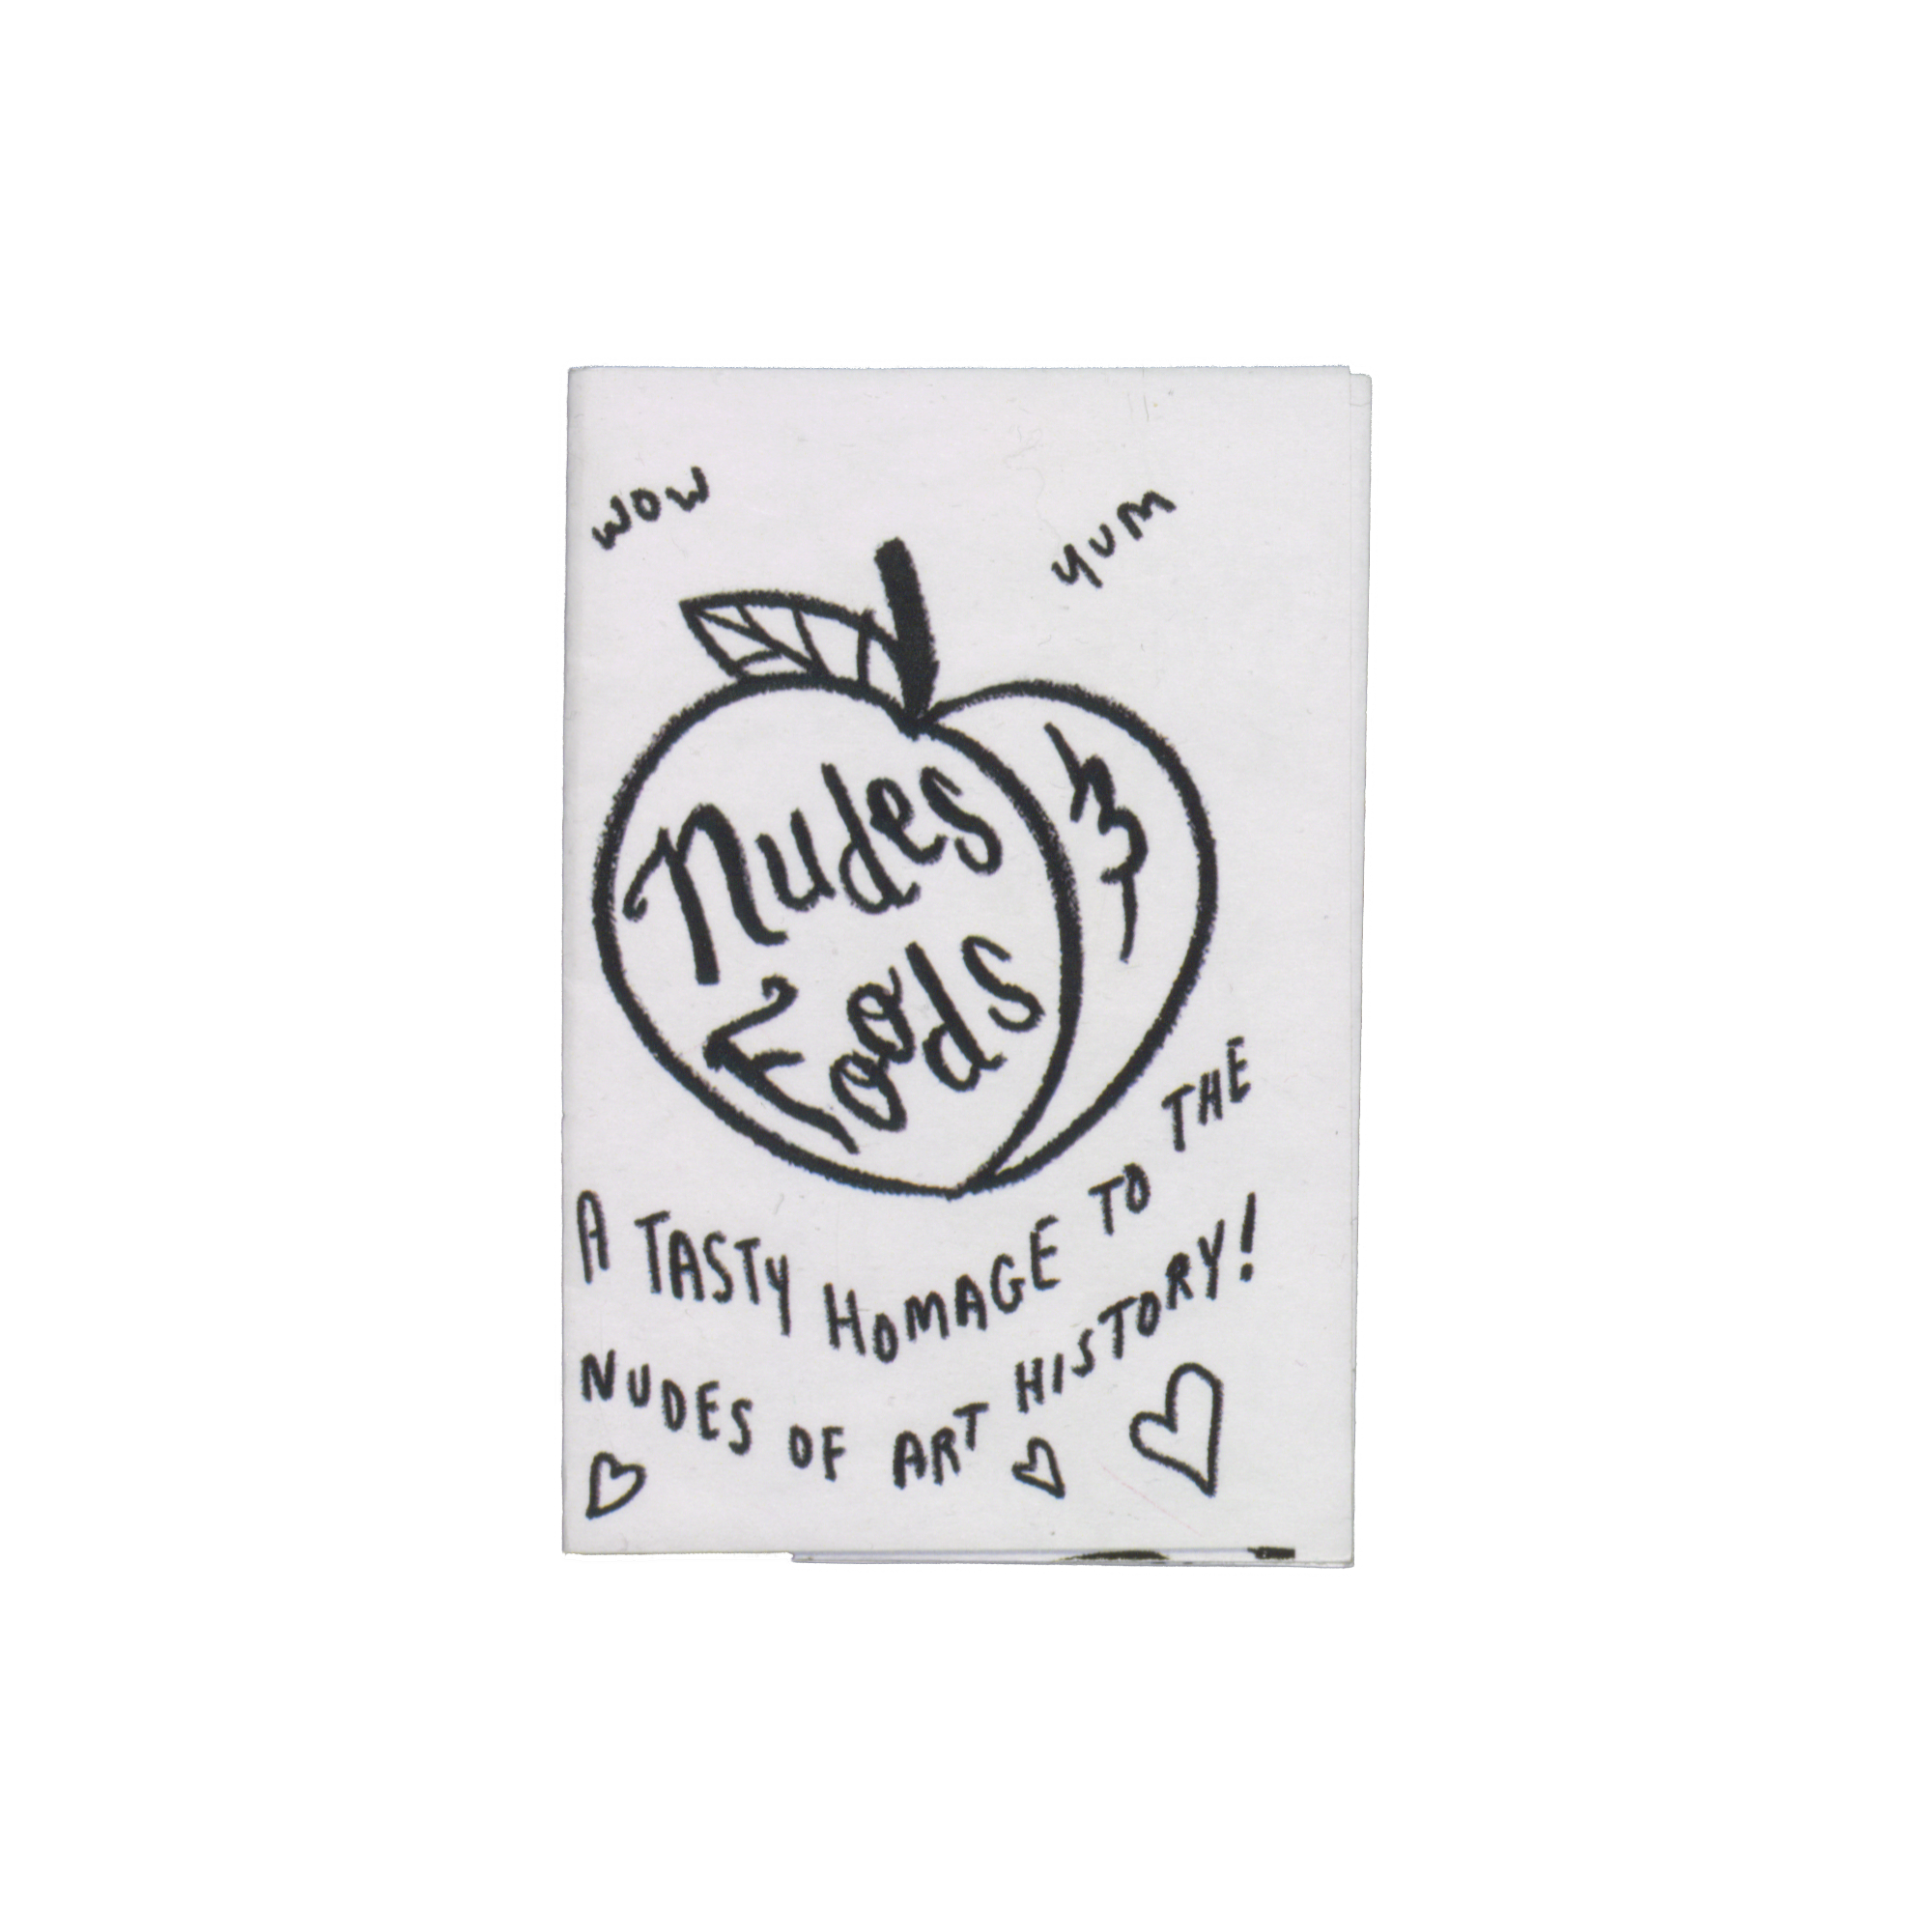 WOW
YUM
Nudes
Foods
A TASTY HOMAGE TO THE
NUDES OF ART HISTORY!